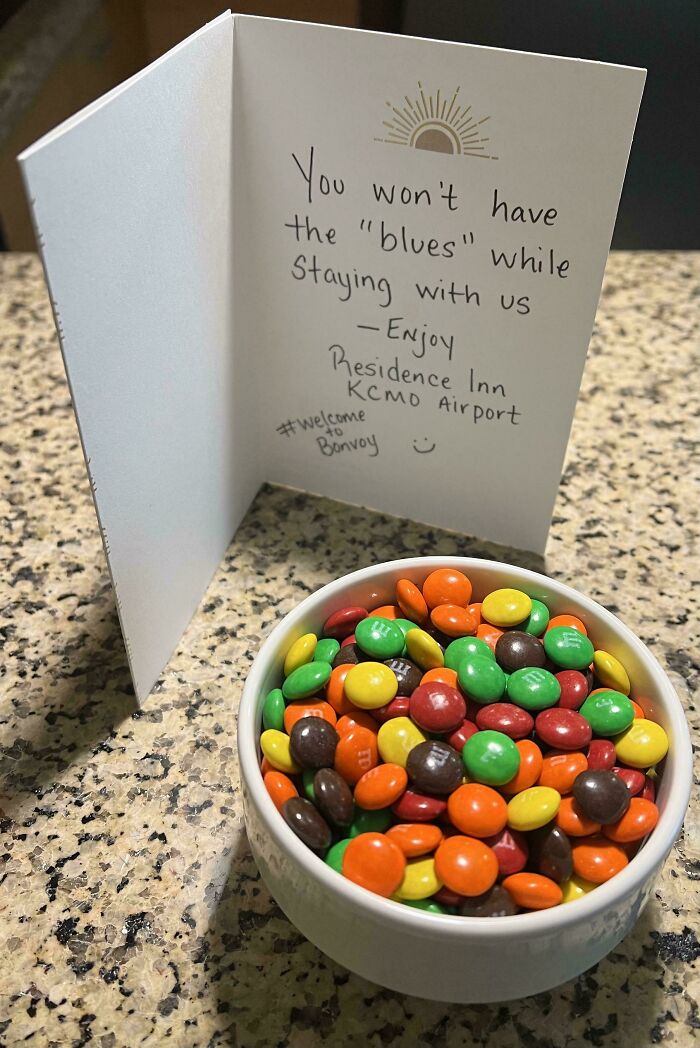 You won't have
the "blues" while
staying with us
— Enjoy
Residence Inn
KCMO Airport
#welcome
to
Bonvoy
m
m
m
m
m